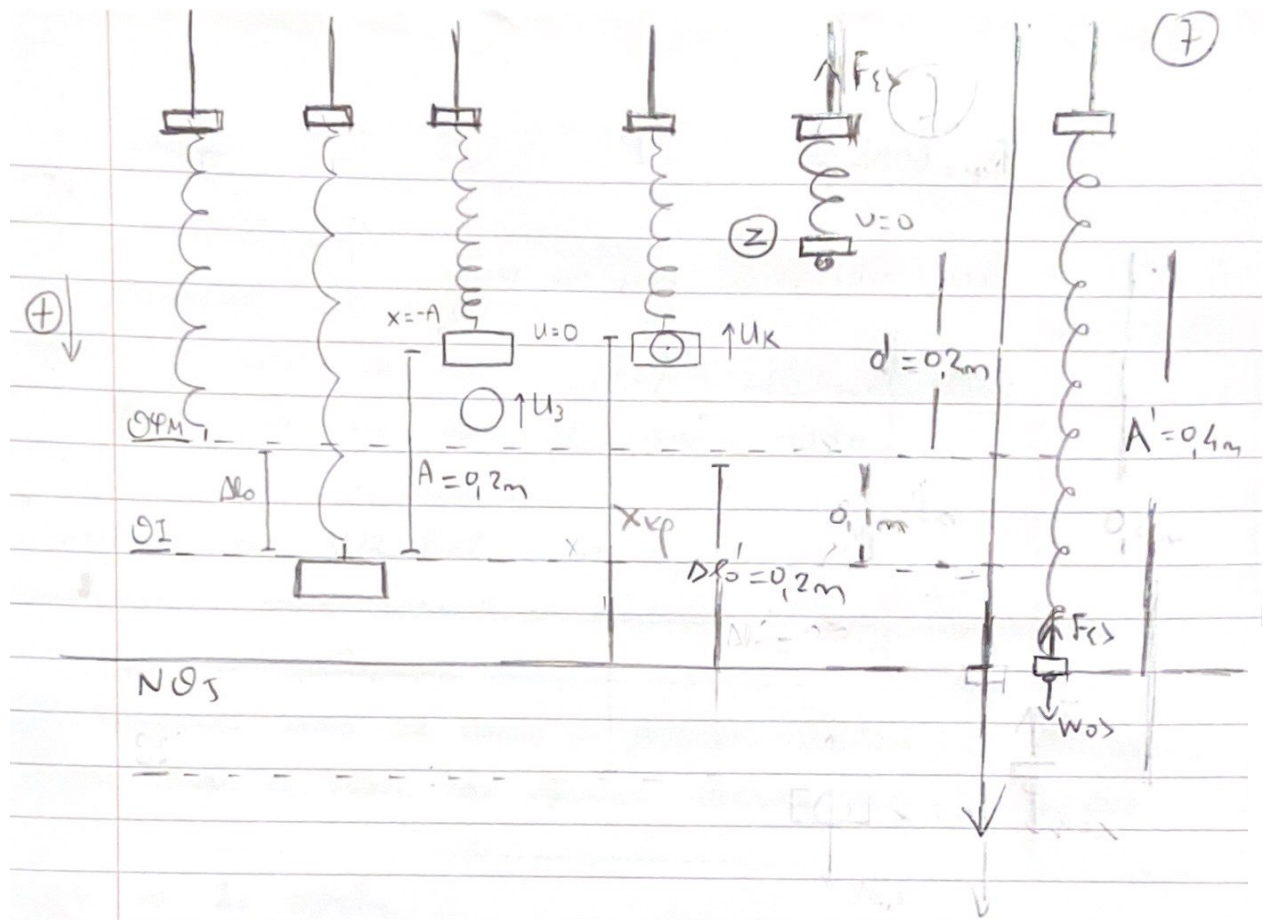 7
Fελ
2
υ=0
+
x=-A
υ=0
↑υκ
d=0,2m
↑υ3
ΘΦΜ
A'=0,4m
Δl₀
A=0,2m
xκρ
0,1m
ΘΙ
Δl₀'=0,2m
Fελ
ΝΘΙ
Wολ